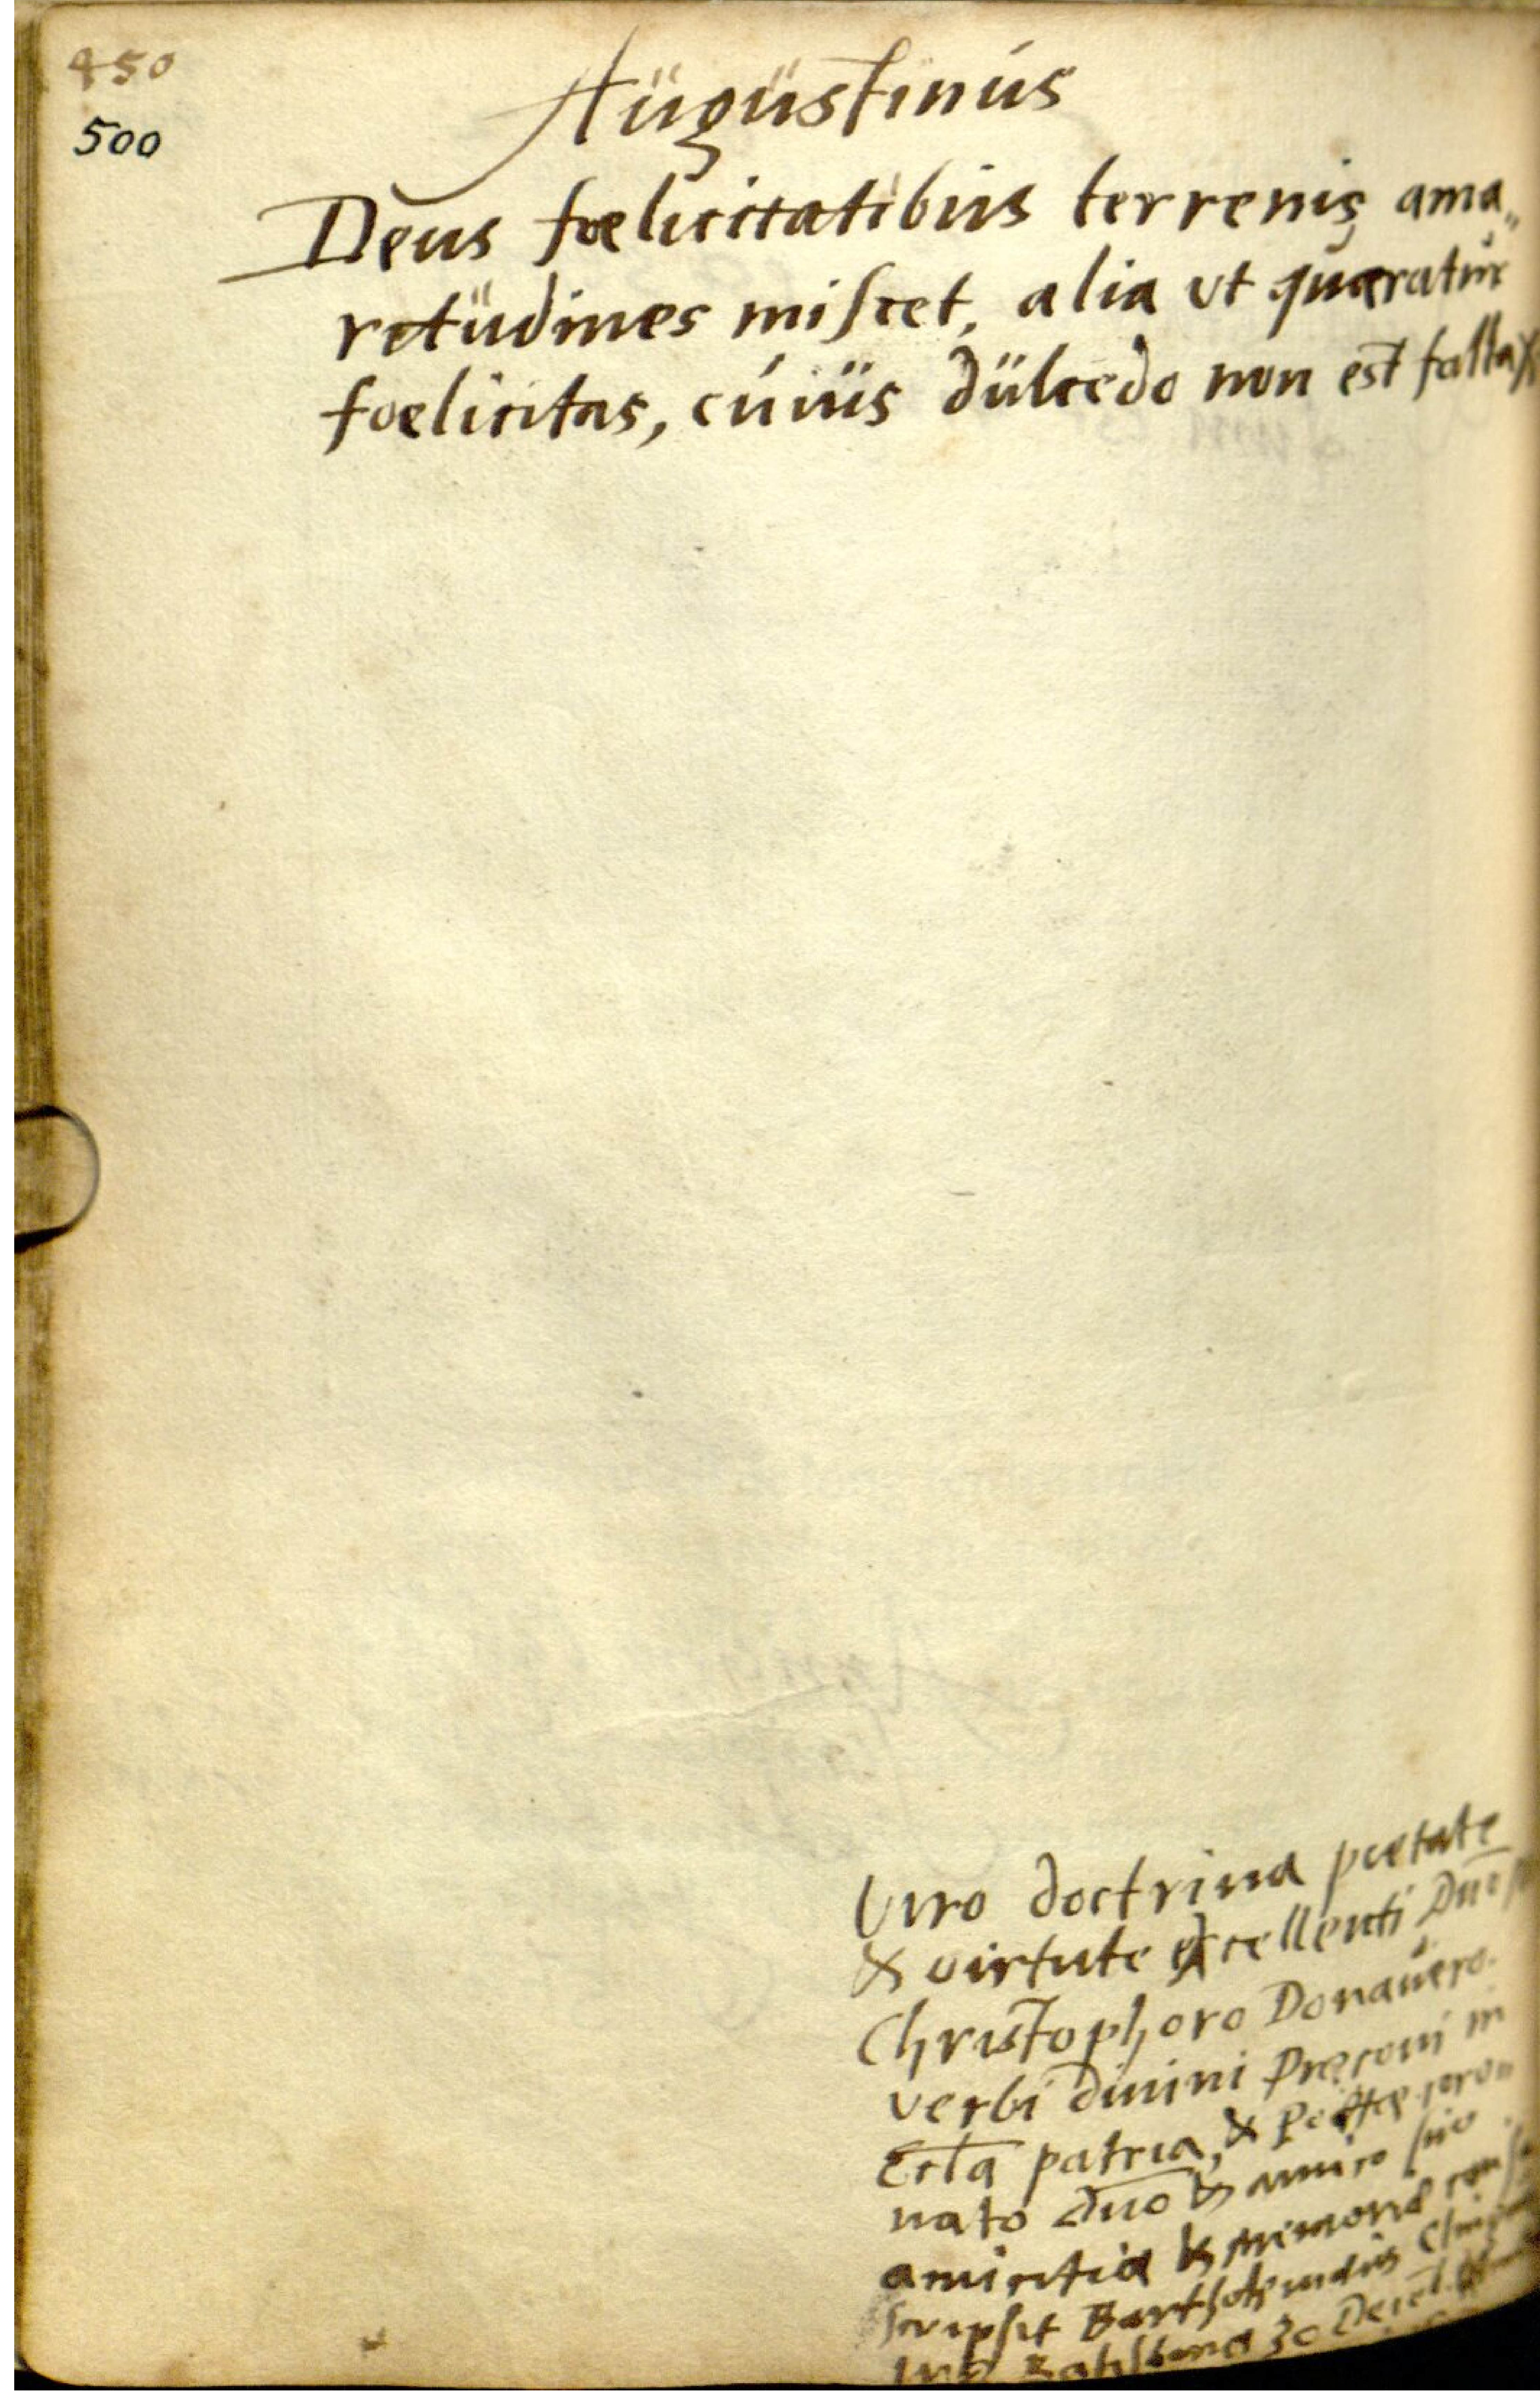 450
500
Augustinus
Deus foelicitatibus terrenis ama„
ritudines miscet, alia vt quaeratur
foelicitas, cuius dulcedo non est fallax
Viro doctrina pietate
& virtute excellenti Dno
Christophoro Donauero
verbi diuini Praeconi in
Eccla patria, & Poëtae coro„
nato Dno & amico suo
amicitiae & memoriae
scripsit Bartholomaeus
Ratisbona 30